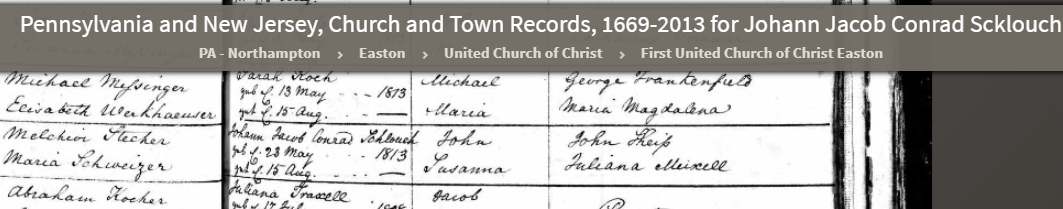 Pennsylvania and New Jersey, Church and Town Records, 1669-2013 for Johann Jacob Conrad Scklouch
PA - Northampton › Easton › United Church of Christ › First United Church of Christ Easton
Sarah Koch
Michael Messinger Michael George Frankenfeld
13 May - - - 1813
Elisabeth Werkhaeuser Maria Maria Magdalena
15 Aug. —
Johann Jacob Conrad Schlouch
Melchior Stecher John John Theis
23 May - - - 1813
Maria Schweizer Susanna Juliana Mixell
15 Aug. —
Juliana Traxell
Abraham Kocher Jacob